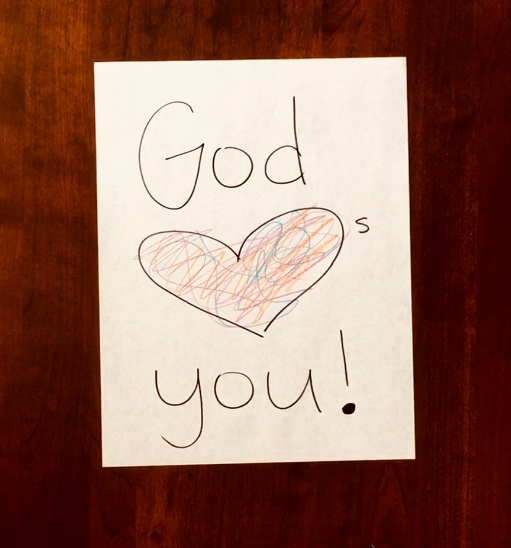 God
❤s
you!